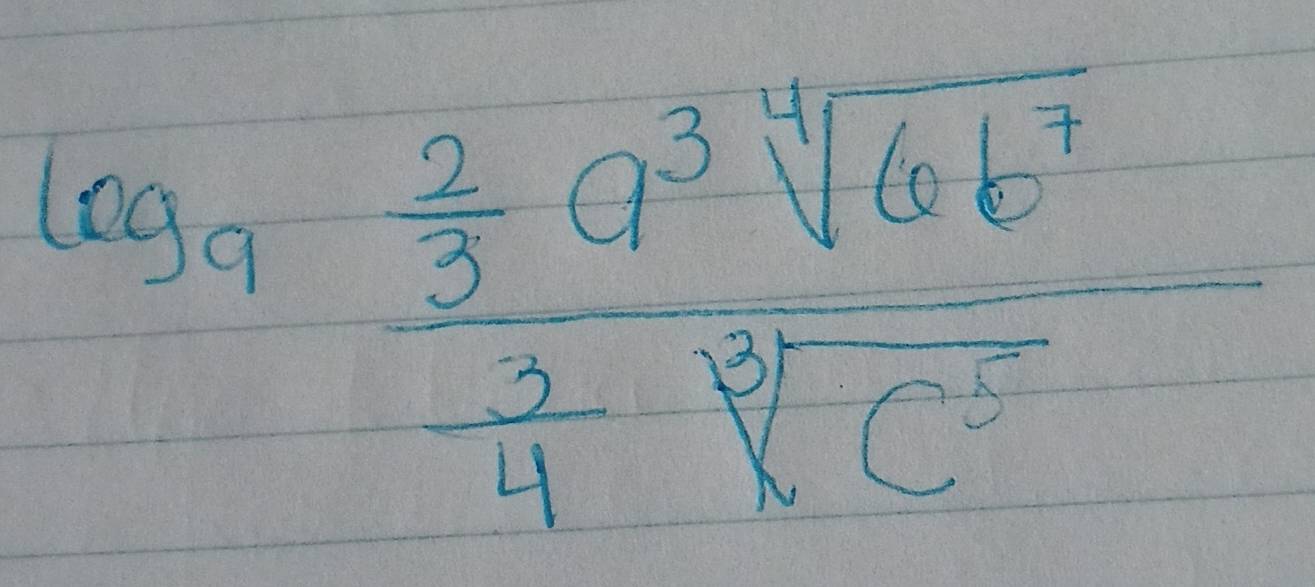 log₉ \frac{\frac{2}{3} a^3 \sqrt[4]{6b^7}}{\frac{3}{4} \sqrt[3]{c^5}}